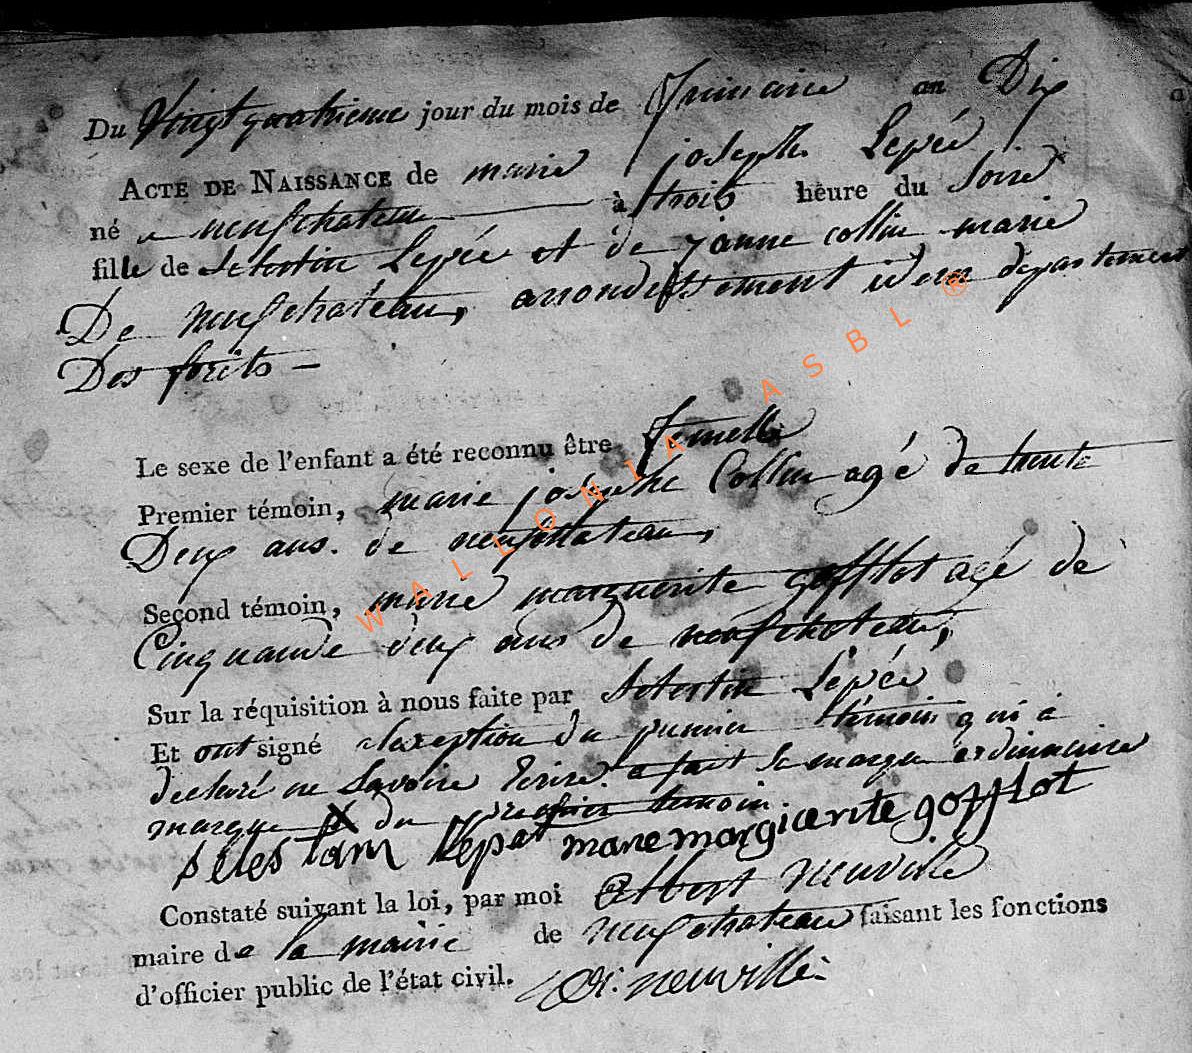 Du Vingt quatrieme jour du mois de frimaire an Dix
ACTE DE NAISSANCE de marie josephe Lepée
né a neufchateau à trois heure du soire
fille de selestin Lepée et de janne collin marie
De neufchateau, arrondissement idem departement
Des forêts —
Le sexe de l'enfant a été reconnu être femelle
Premier témoin, marie josephe Collin agé de trente
Deux ans. de neufchateau,
Second témoin, marie marguerite gofflot agé de
Cinquande deux ans de neufchateau,
Sur la réquisition à nous faite par selestin Lepée
Et ont signé du premier témoin qui a
declaré ne savoire Ecrire a fait sa marque ordinnaire
marque X du premier temoin.
selestam lepat marie margierite gofflot
Constaté suivant la loi, par moi albert neuville
maire de la mairie de neufchateau faisant les fonctions
d'officier public de l'état civil. neuville
WALLONIA ASBL ®